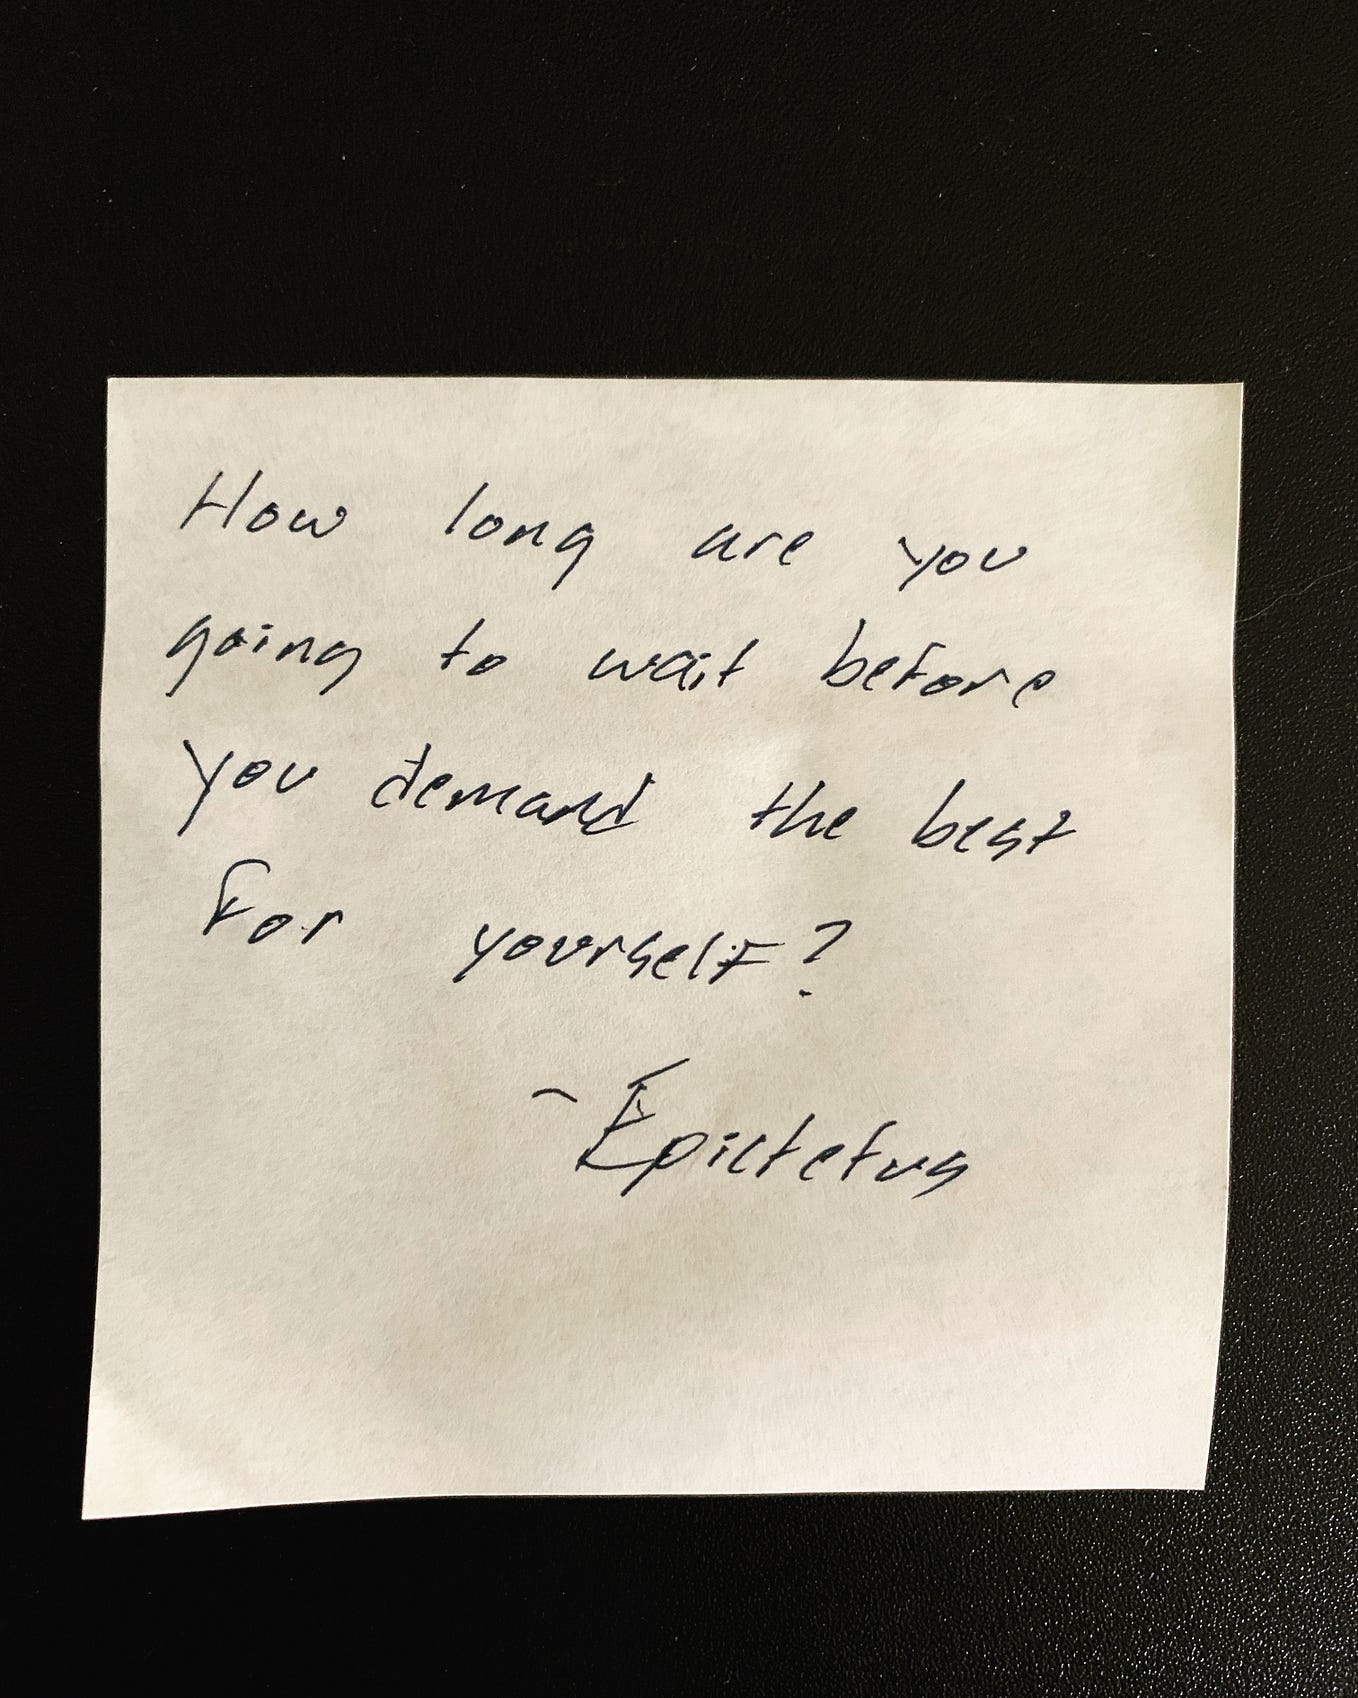 How long are you
going to wait before
you demand the best
for yourself?
~ Epictetus